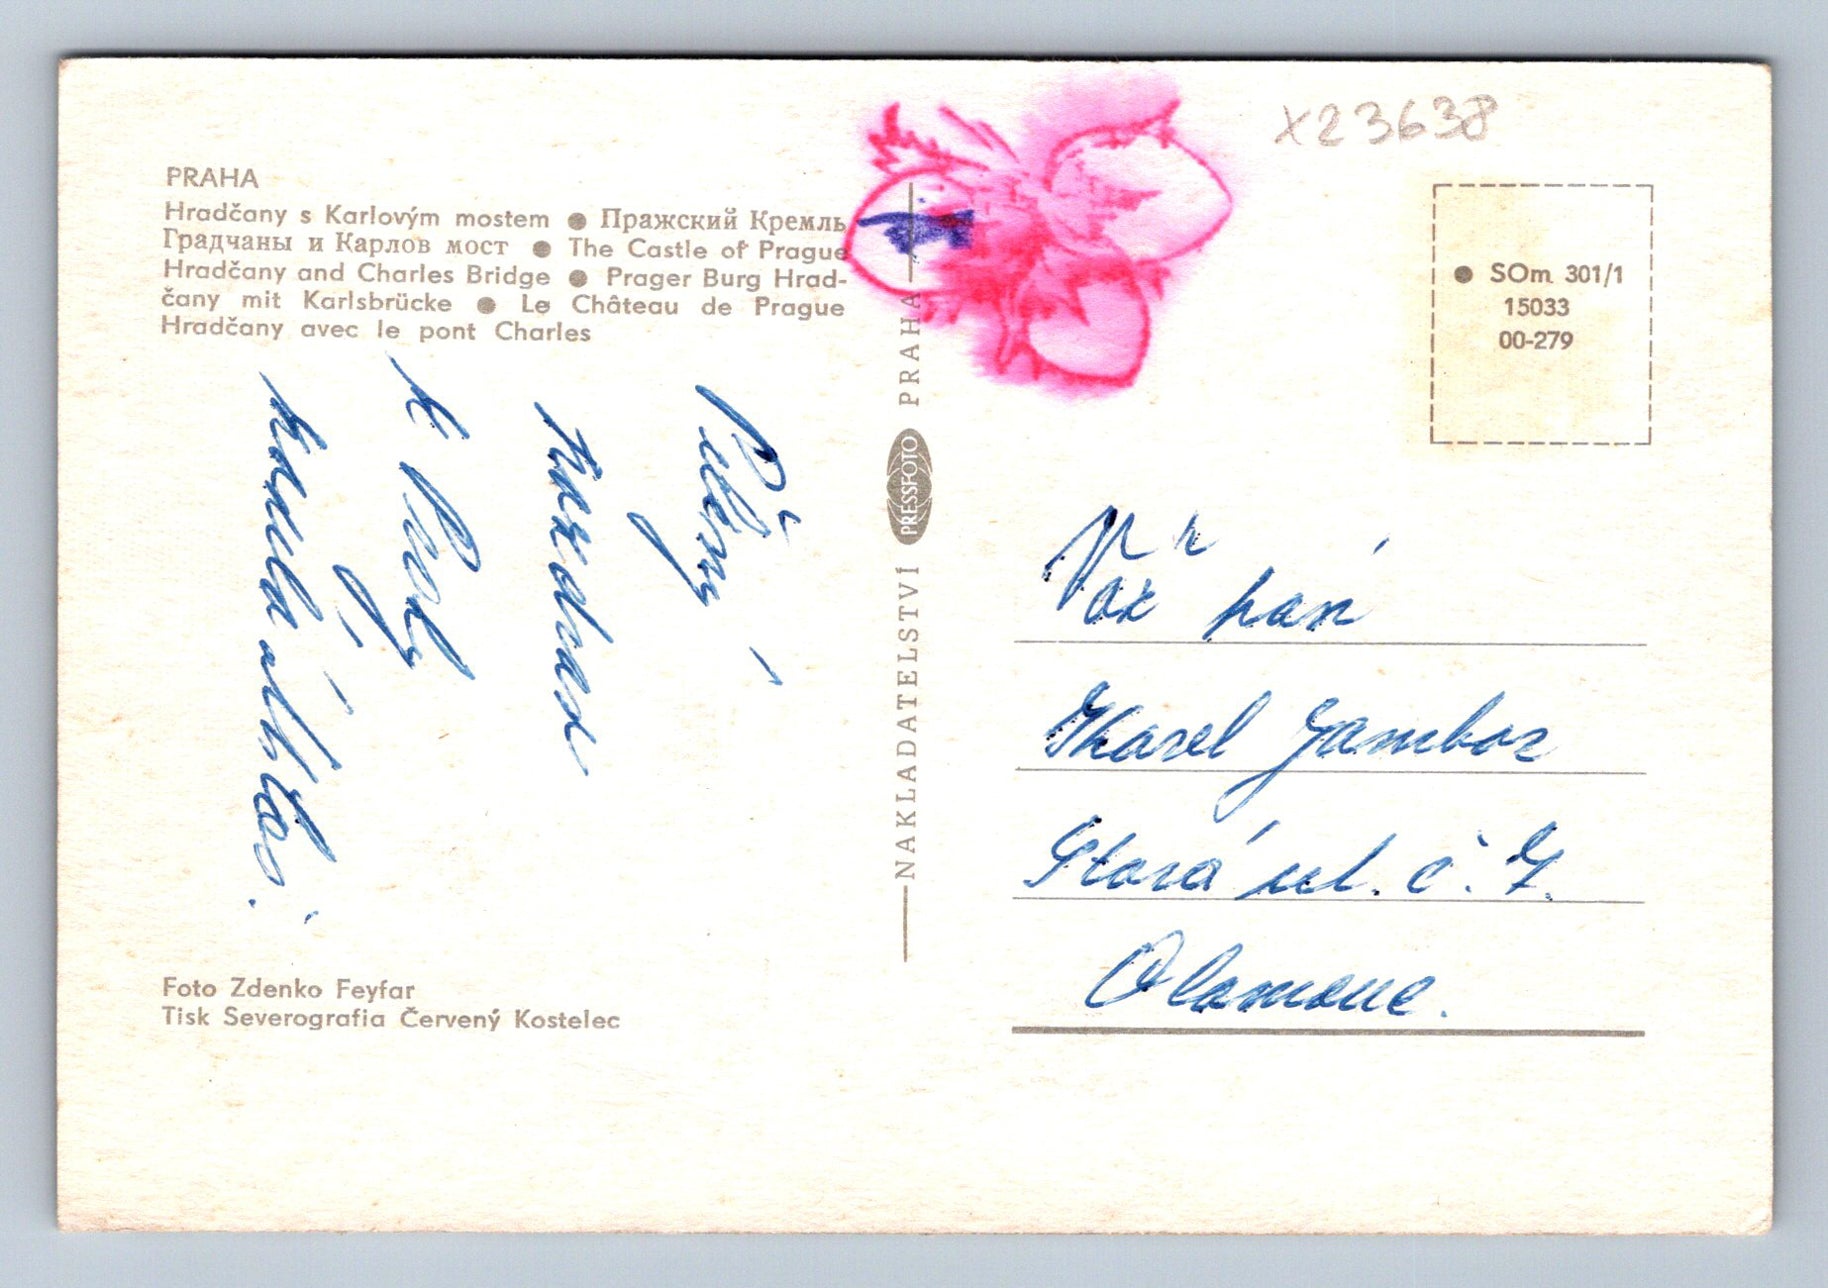 x23638
PRAHA
Hradčany s Karlovým mostem ● Пражский Кремль
Градчаны и Карлов мост ● The Castle of Prague
Hradčany and Charles Bridge ● Prager Burg Hrad-
čany mit Karlsbrücke ● Le Château de Prague
Hradčany avec le pont Charles
● SOm 301/1
15033
00-279
Pěkný
pozdrav
z Prahy
NAKLADATELSTVÍ PRESSFOTO PRAHA
Váž paní
Karel Jambor
Stará ul. č. 7.
Olomouc.
Foto Zdenko Feyfar
Tisk Severografia Červený Kostelec